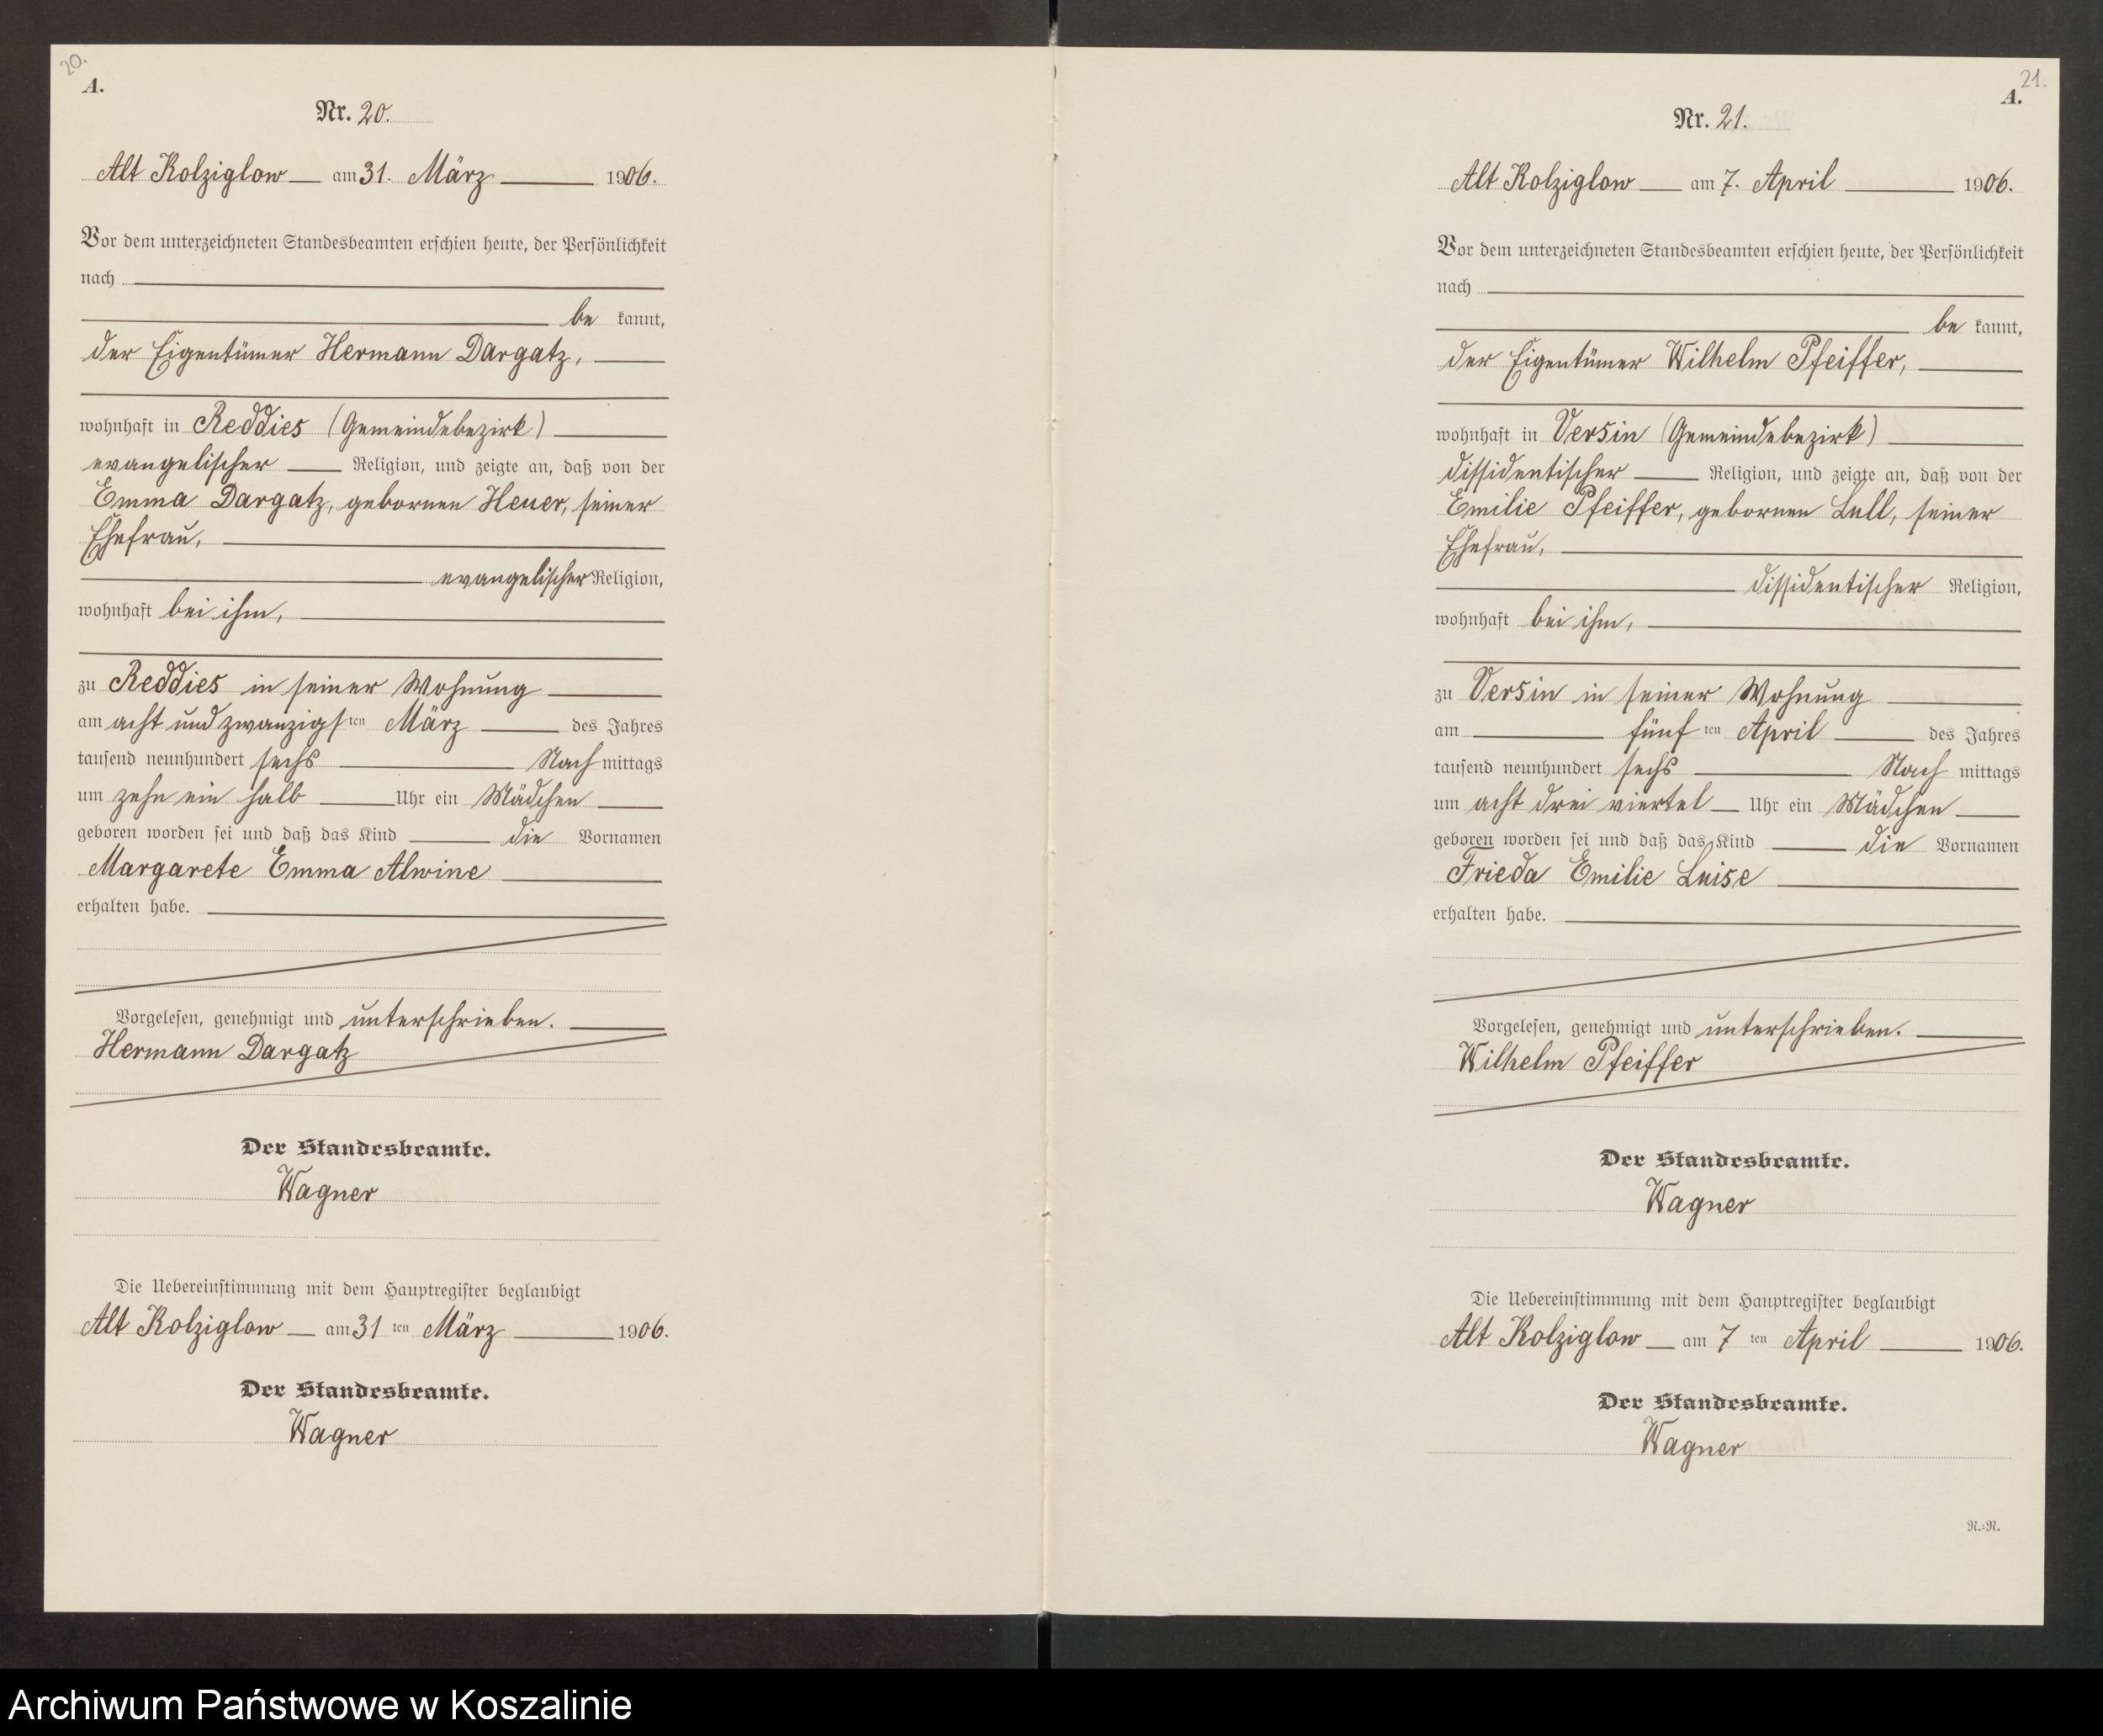 20.
A.
Nr. 20.
Alt Kolziglow am 31. März 1906.
Vor dem unterzeichneten Standesbeamten erschien heute, der Persönlichkeit
nach
be kannt,
der Eigentümer Hermann Dargatz,
wohnhaft in Reddies (Gemeindebezirk)
evangelischer Religion, und zeigte an, daß von der
Emma Dargatz, gebornen Heuer, seiner
Ehefrau,
evangelischer Religion,
wohnhaft bei ihm,
zu Reddies in seiner Wohnung
am acht und zwanzigsten März des Jahres
tausend neunhundert sechs Nachmittags
um zehn ein halb Uhr ein Mädchen
geboren worden sei und daß das Kind die Vornamen
Margarete Emma Alwine
erhalten habe.
Vorgelesen, genehmigt und unterschrieben.
Hermann Dargatz
Der Standesbeamte.
Wagner
Die Uebereinstimmung mit dem Hauptregister beglaubigt
Alt Kolziglow am 31 ten März 1906.
Der Standesbeamte.
Wagner
21.
A.
Nr. 21.
Alt Kolziglow am 7. April 1906.
Vor dem unterzeichneten Standesbeamten erschien heute, der Persönlichkeit
nach
be kannt,
der Eigentümer Wilhelm Pfeiffer,
wohnhaft in Versin (Gemeindebezirk)
dissidentischer Religion, und zeigte an, daß von der
Emilie Pfeiffer, gebornen Lull, seiner
Ehefrau,
dissidentischer Religion,
wohnhaft bei ihm,
zu Versin in seiner Wohnung
am fünf ten April des Jahres
tausend neunhundert sechs Nach mittags
um acht drei viertel Uhr ein Mädchen
geboren worden sei und daß das Kind die Vornamen
Frieda Emilie Luise
erhalten habe.
Vorgelesen, genehmigt und unterschrieben.
Wilhelm Pfeiffer
Der Standesbeamte.
Wagner
Die Uebereinstimmung mit dem Hauptregister beglaubigt
Alt Kolziglow am 7 ten April 1906.
Der Standesbeamte.
Wagner
N.=N.
Archiwum Państwowe w Koszalinie